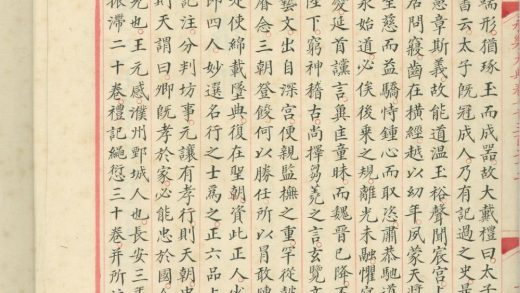 形猶琢玉而成器故大戴禮曰太子
書云太子既冠成人乃有記過之史是
意章斯義故能道溫玉裕聲聞宸宮上
居問寢齒在橫經越以幼年夙蒙天
至慈而益驕恃鍾心而取恣肅恭馳道
永始道必俟後乘之規離光未融懼宮
爰延首讜言輿童昧而魏晉已降
陛下窮神稽古尚擇芻蕘之言玄覽文
睿念三朝登餕何以勝任所以冒敢陳
藝文出自深宮便親監撫之重罕從趨
定使綿載墜典復在聖朝資此正人少
即四人妙選名行之士爲之正六品上
記注分判坊事元讓有孝行則天朝忠
則天謂曰卿既孝於家必能忠於國今
也王元感濮州鄄城人也長安三年
振滯二十卷禮記繩愆三十卷并所注